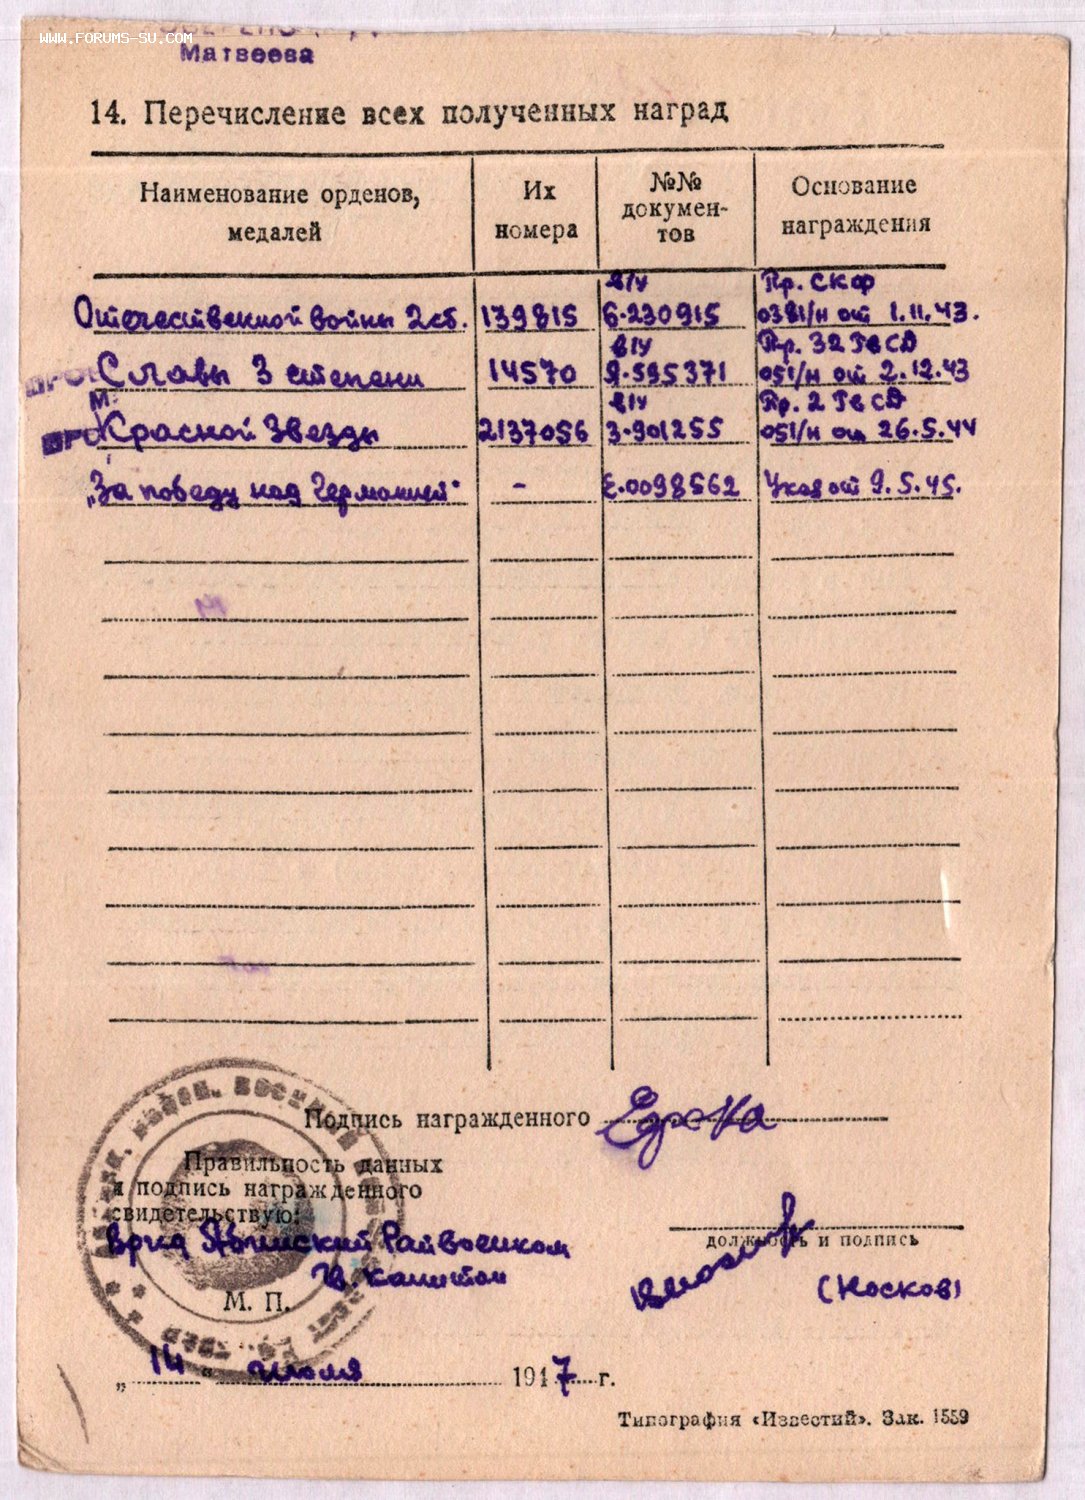 WWW.FORUMS-SU.COM
Матвеева
14. Перечисление всех полученных наград
Наименование орденов, медалей
Их номера
№№ докумен-тов
Основание награждения
Отечественной войны 2 ст. 139815 в/у Б.230915 Пр. СКФ 0381/н от 1.11.43.
Славы 3 степени 14570 в/у Д.595371 Пр. 32 Гв СД 051/н от 2.12.43
М.
Красной Звезды 2137056 в/у З.901255 Пр. 2 Гв СД 051/н от 26.5.44
„За победу над Германией" - Е.0098562 Указ от 9.5.45.
Подпись награжденного
Правильность данных
и подпись награжденного
свидетельствую:
Врид Абинский Райвоенком
Гв. капитан
М. П.
должность и подпись
(Носков)
„14" июля 1947 г.
Типография «Известий». Зак. 1559